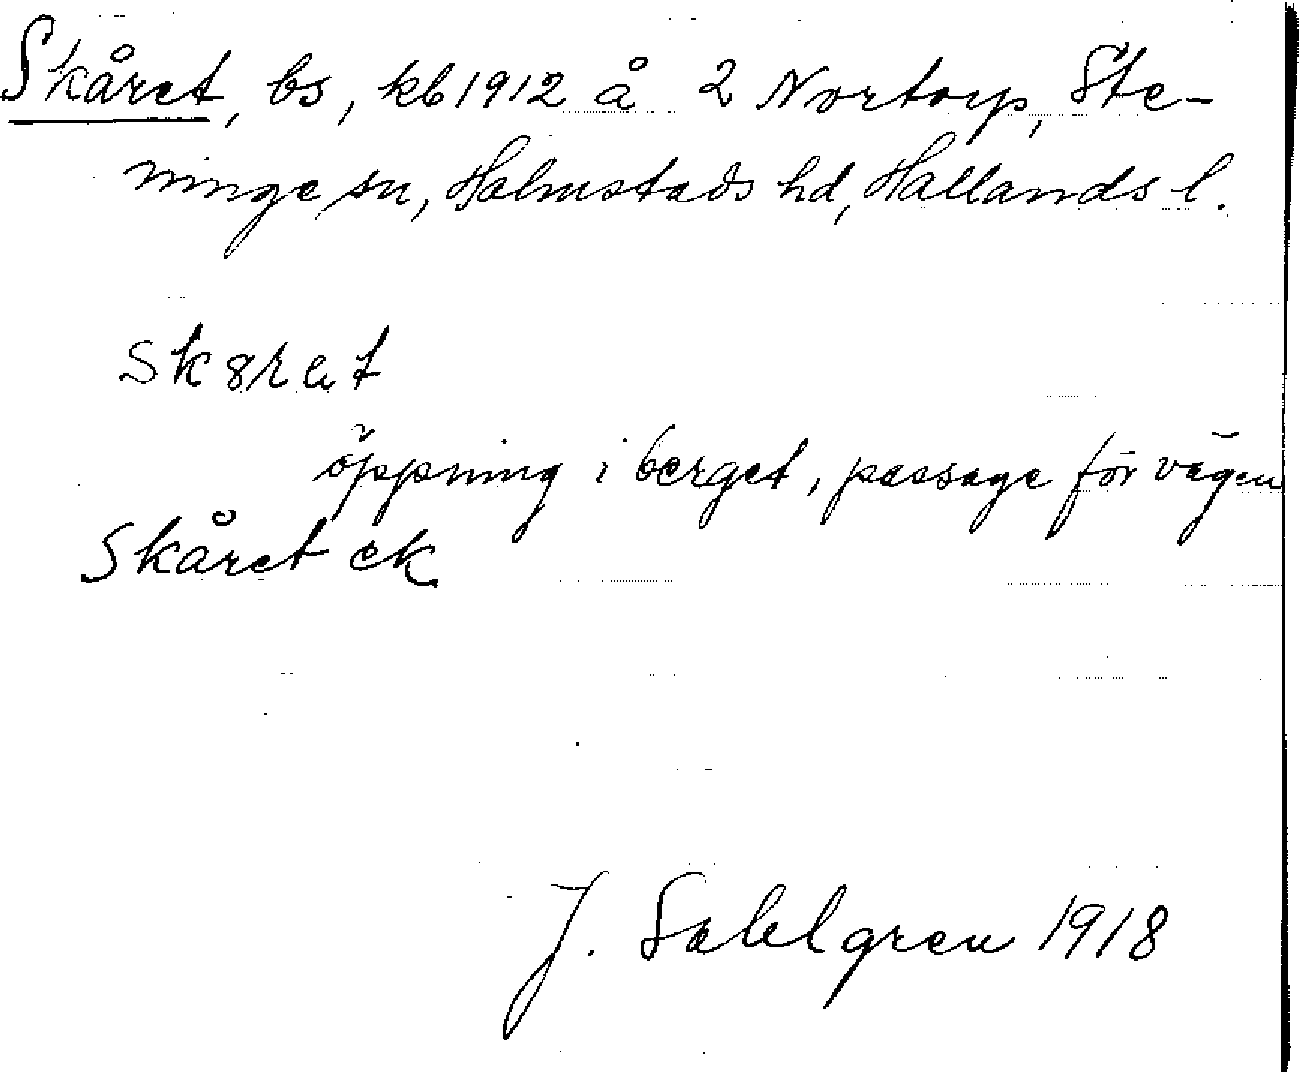 Skåret, bs, kb 1912 å 2 Nortorp, Ste-
ninge sn, Halmstads hd, Hallands l.
sk8rat
öppning i berget, passage för vägen
Skåret ek
J. Sahlgren 1918